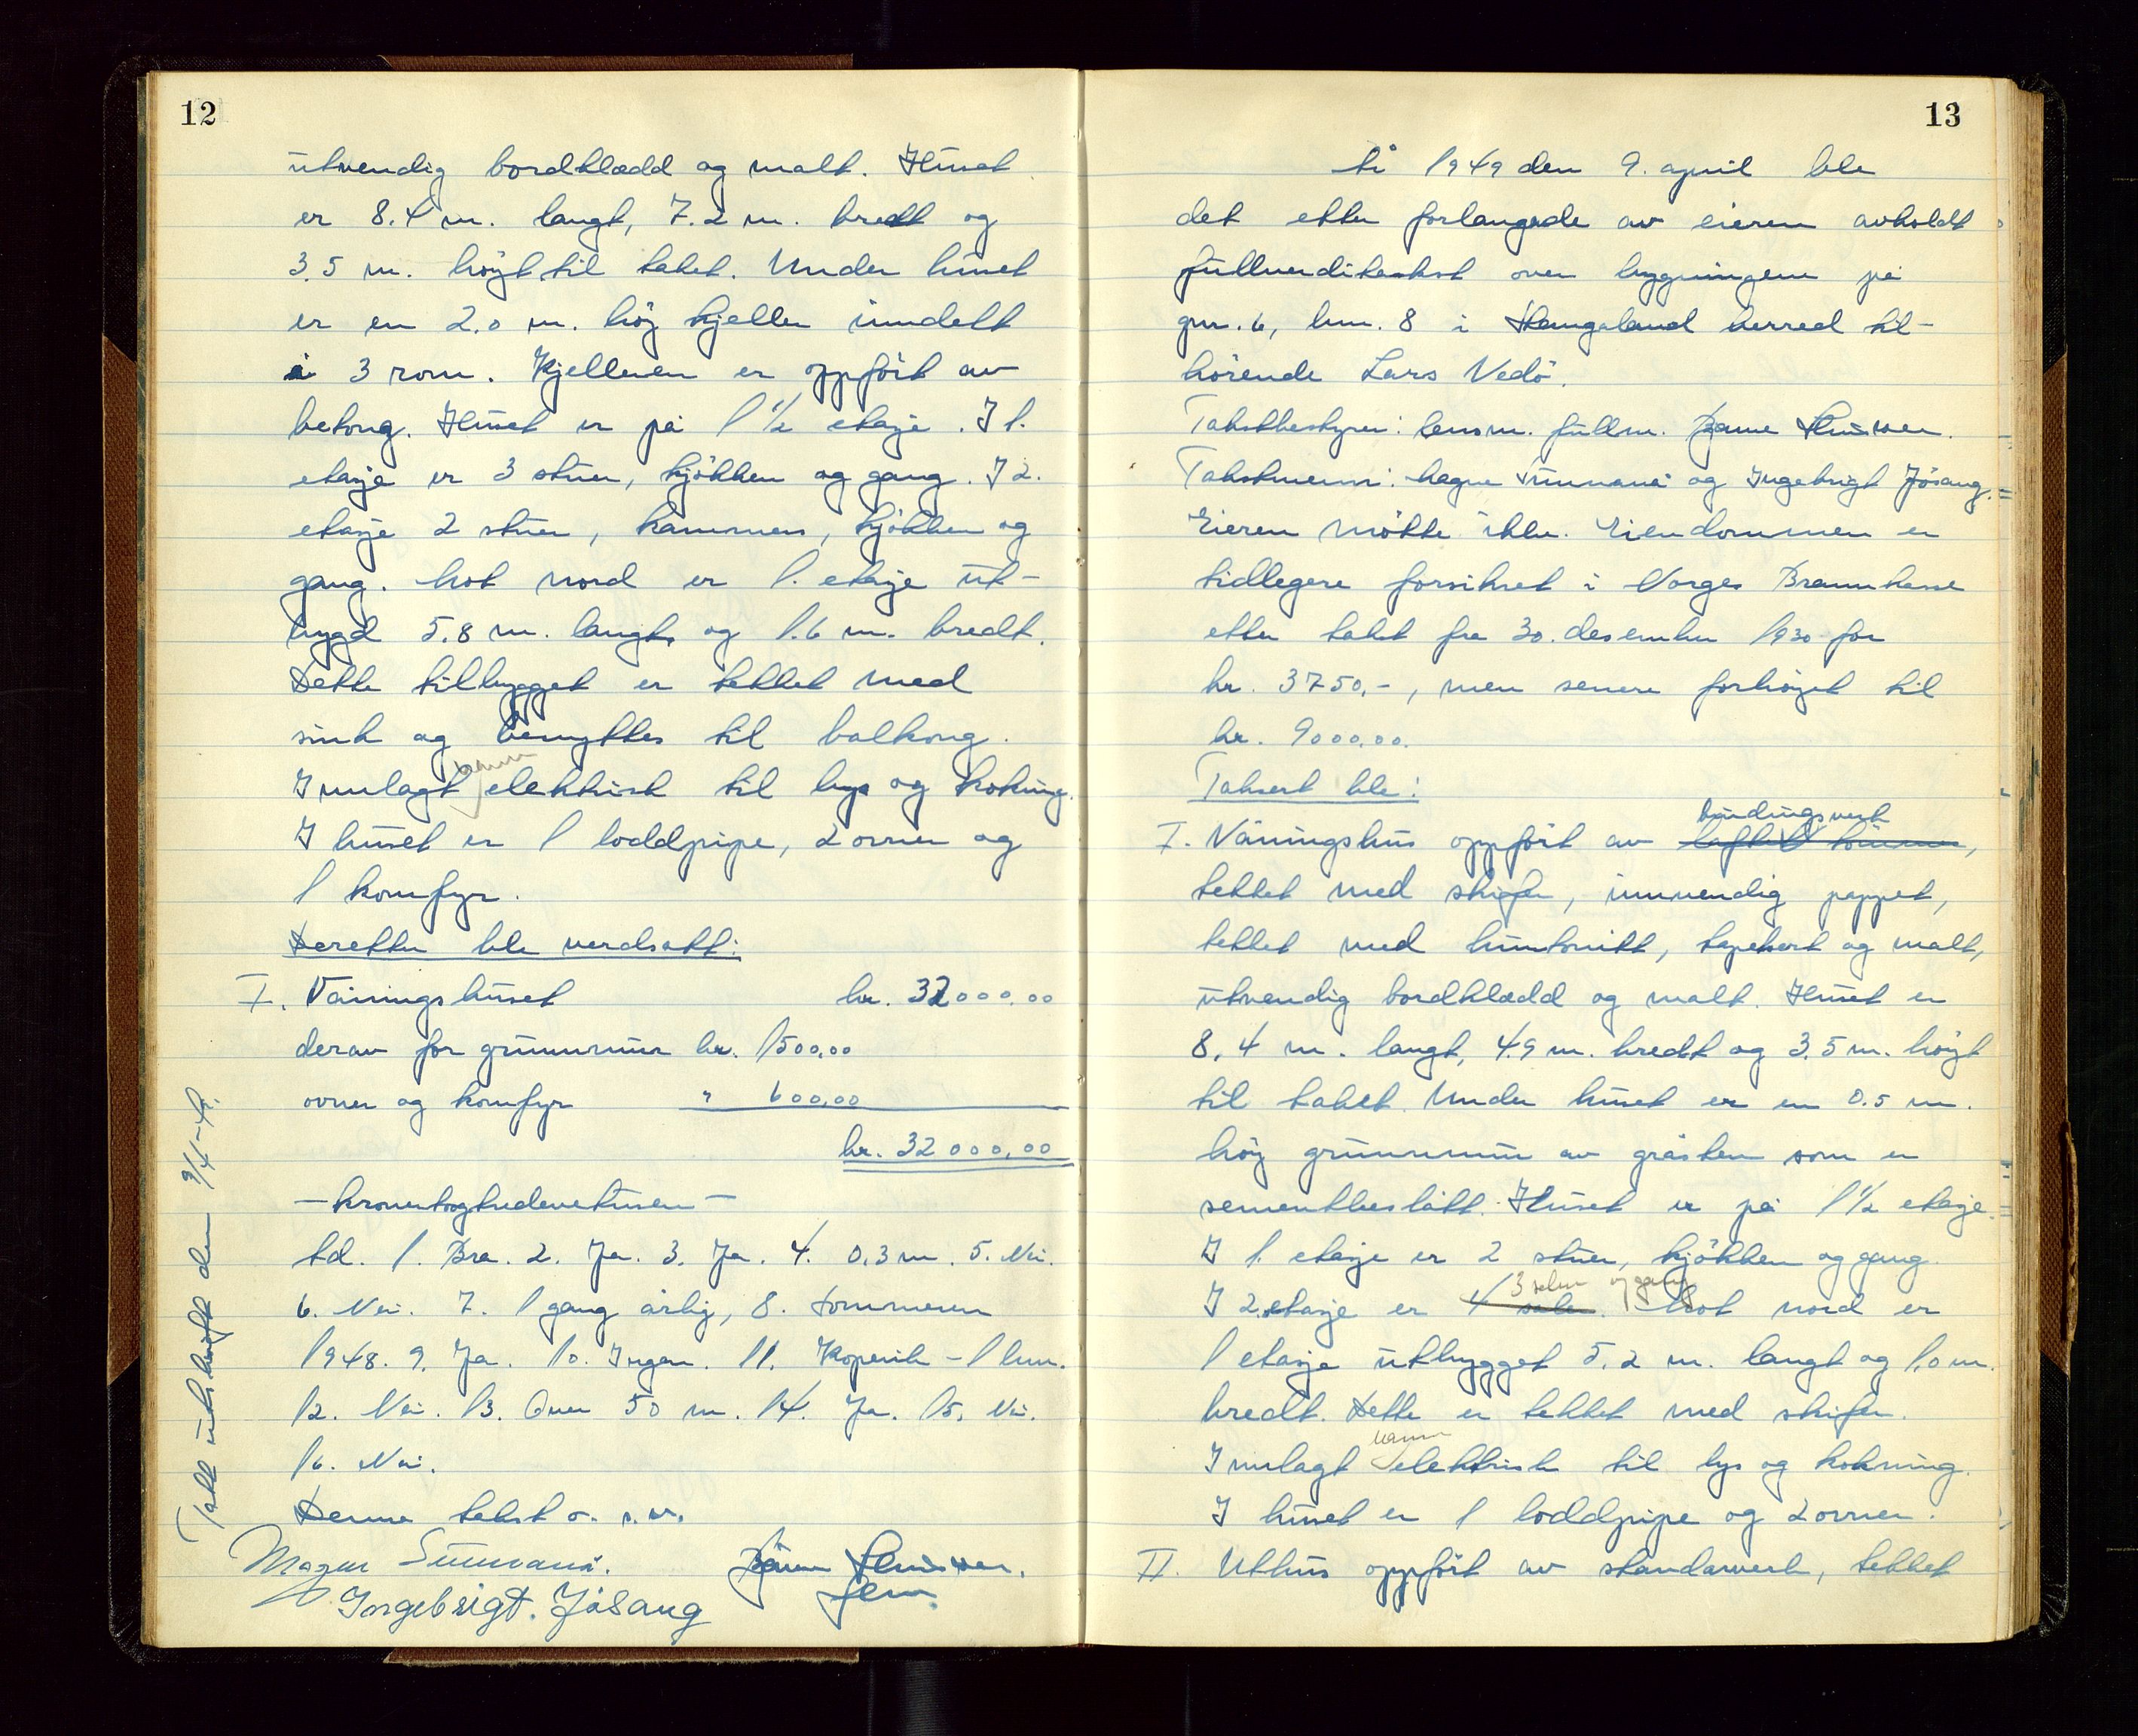 12
utvendig bordklædd og malt. Huset
er 8.4 m. langt, 7.2 m. bredt og
3.5 m. høyt til taket. Under huset
er en 2.0 m. høy kjeller inndelt
i 3 rom. Kjelleren er oppført av
betong. Huset er på 1 1/2 etasje. I 1.
etasje er 3 stuer, kjøkken og gang. I 2.
etasje 2 stuer, kammers, kjøkken og
gang. Mot nord er 1. etasje ut-
bygd 5.8 m. langt og 1.6 m. bredt.
Dette tilbygget er tekket med
sink og benyttes til balkong.
vann
Innlagt elektrisk til lys og koking.
I huset er 1 loddpipe, 2 ovner og
1 komfyr.
Deretter ble verdsatt:
I. Våningshuset kr. 32000,00
derav for grunnmur kr. 1500,00
ovner og komfyr " 600,00
kr. 32000,00
- kronertrogtredevetusen -
td. 1. Bra. 2. Ja. 3. Ja. 4. 0,3 m. 5. Nei.
6. Nei. 7. 1 gang årlig, 8. Sommeren
1948. 9. Ja. 10. Ingen. 11. Kopervik - 1 km.
12. Nei. 13. Over 50 m. 14. Ja. 15. Nei.
16. Nei.
Denne takst o. s. v.
Magne Sunnanå.
Ingebrigt. Jøsang
Takst utskrift den 9/4-49.
13
År 1949 den 9. april ble
det etter forlangende av eieren avholdt
fullverditakst over bygningene på
gnr. 6, bnr. 8 i Stangaland herred til-
hørende Lars Vedø.
Takstbestyrer: lensm. fullm.
Takstmenn: Magne Sunnanå og Ingebrigt Jøsang.
Eieren møtte ikke. Eiendommen er
tidlegere forsikret i Norges Brannkasse
etter takst fra 30. desember 1930 for
kr. 3750,-, men senere forhøyet til
kr. 9000,00.
Taksert ble:
bindingsverk
I. Våningshus oppført av laftet tømmer,
tekket med skifer, innvendig pappet,
tekket med huntonitt, tapetsert og malt,
utvendig bordklædd og malt. Huset er
8,4 m. langt, 4.9 m. bredt og 3,5 m. høyt
til taket. Under huset er en 0.5 m.
høy grunnmur av gråsten som er
sementbeslått. Huset er på 1 1/2 etasje.
I 1. etasje er 2 stuer, kjøkken og gang.
3 rom og gang
I 2. etasje er 4 saler. Mot nord er
1 etasje utbygget 5.2 m. langt og 1,0 m.
bredt. Dette er tekket med skifer.
vann
Innlagt elektrisk til lys og kokning.
I huset er 1 loddpipe og 2 ovner.
II. Uthus oppført av standarverk, tekket